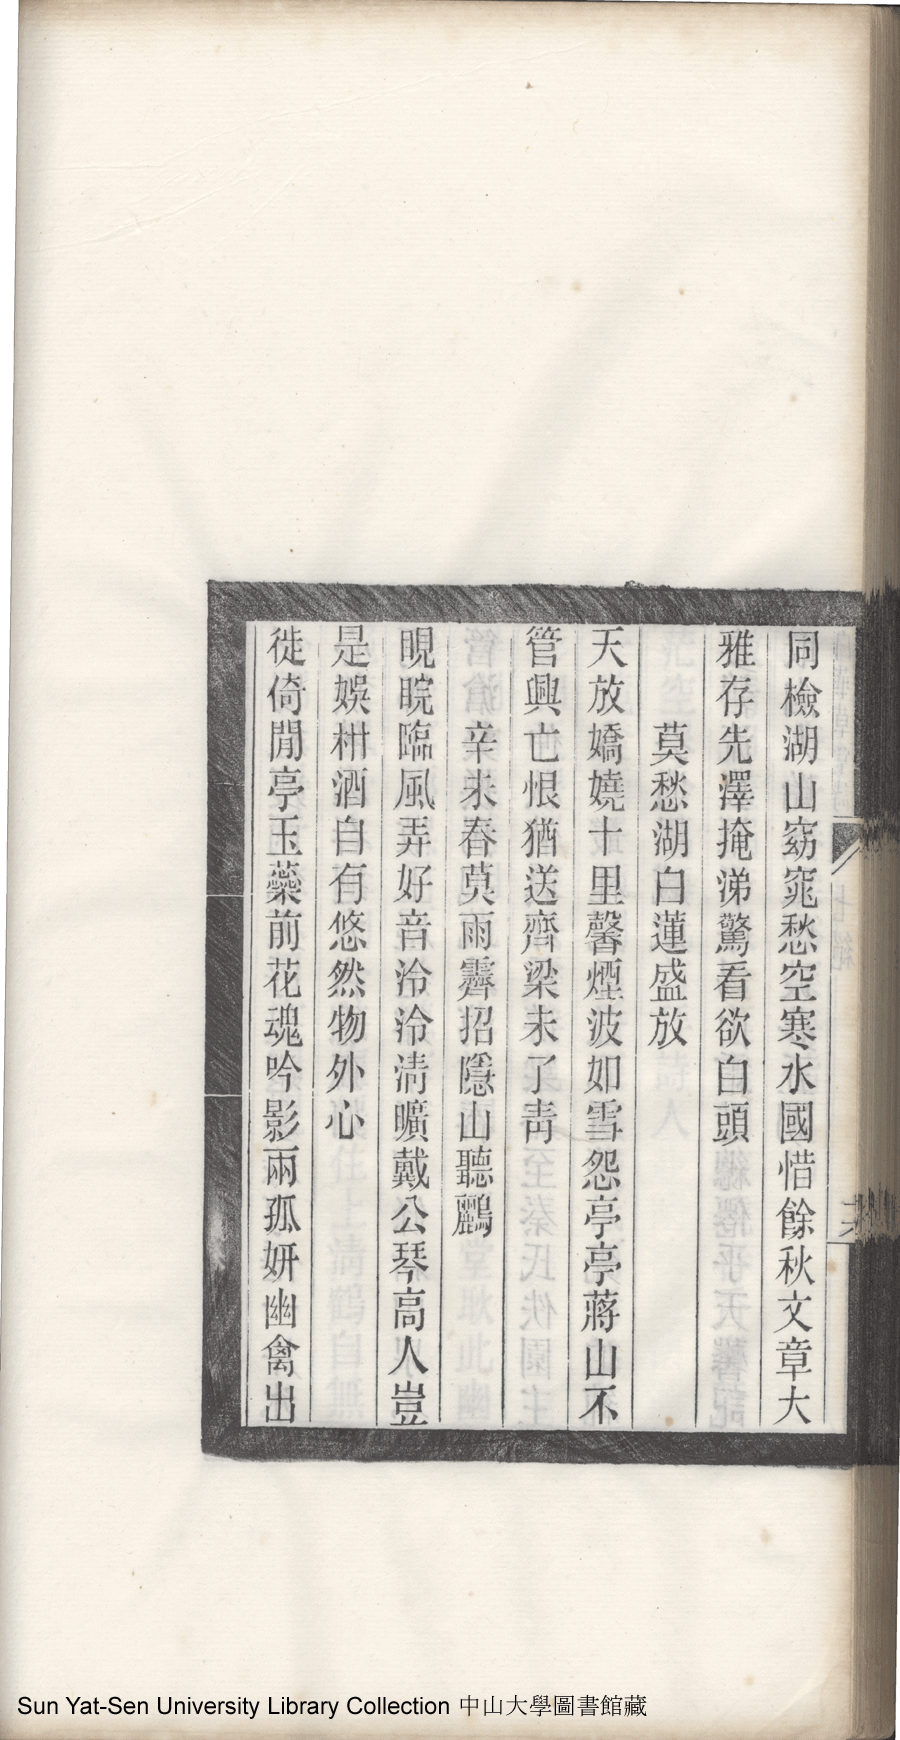 同檢湖山窈窕愁空寒水國惜餘秋文章大
雅存先澤掩涕驚看欲白頭
莫愁湖白蓮盛放
天放嬌嬈十里馨煙波如雪怨亭亭蔣山不
管興亡恨猶送齊梁未了靑
辛未春莫雨霽招隱山聽鸝
睍睆臨風弄好音泠泠淸曠戴公琴高人豈
是娛柑酒自有悠然物外心
徙倚閒亭玉蘂前花魂吟影兩孤妍幽禽出
Sun Yat-Sen University Library Collection 中山大學圖書館藏